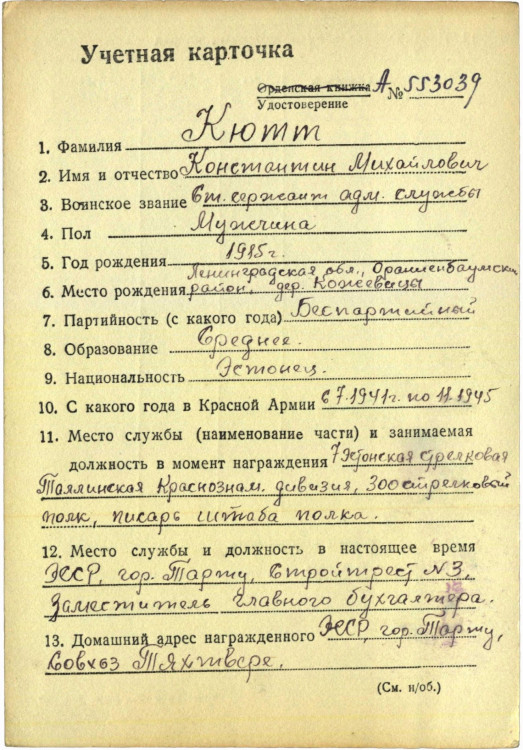 Учетная карточка
Орденская книжка А № 553039
Удостоверение
1. Фамилия Кютт
2. Имя и отчество Константин Михайлович
3. Воинское звание Ст. сержант адм. службы
4. Пол Мужчина
5. Год рождения 1915г.
Ленинградская обл., Ораниенбаумский
6. Место рождения район, дер. Кожевицы
7. Партийность (с какого года) Беспартийный
8. Образование Среднее.
9. Национальность Эстонец.
10. С какого года в Красной Армии с 7.1941г. по 11.1945
11. Место службы (наименование части) и занимаемая
должность в момент награждения 7 Эстонская стрелковая
Таллинская Краснознам. дивизия, 300 стрелковый
полк, писарь штаба полка.
12. Место службы и должность в настоящее время
ЭССР, гор. Тарту, Стройтрест №3,
Заместитель главного бухгалтера.
13. Домашний адрес награжденного ЭССР, гор. Тарту,
Совхоз Тяхтвере.
(См. н/об.)